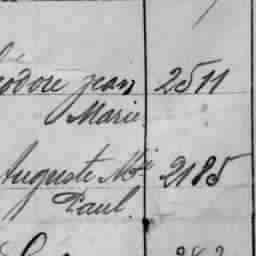 odore Jean 2511
Marie
Auguste Mie 2185
Paul.